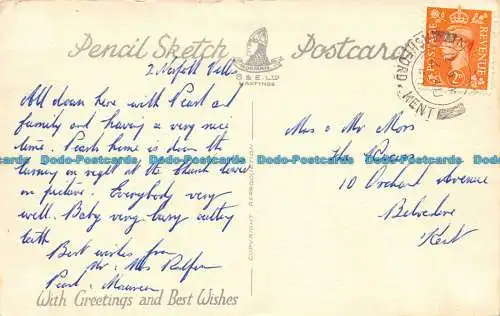 Pencil Sketch Postcard
NORMAN
S & E. LTD
HASTINGS
POSTAGE REVENUE
KENT
2 Norfolk Villas
All down here with Pearl and
family and having a very nice
time. Pearls home is down the
turning on right at the church tower
in picture. Everybody very
well. Baby very busy cutting
teeth
Best wishes from
Mr. & Mrs
Pearl & Maureen
With Greetings and Best Wishes
COPYRIGHT REPRODUCTION
Mrs & Mr Moss
The
10 Orchard Avenue
Belvedere
Kent
Dodo-Postcards Dodo-Postcards Dodo-Postcards Dodo-Postcards Dodo-Postcards